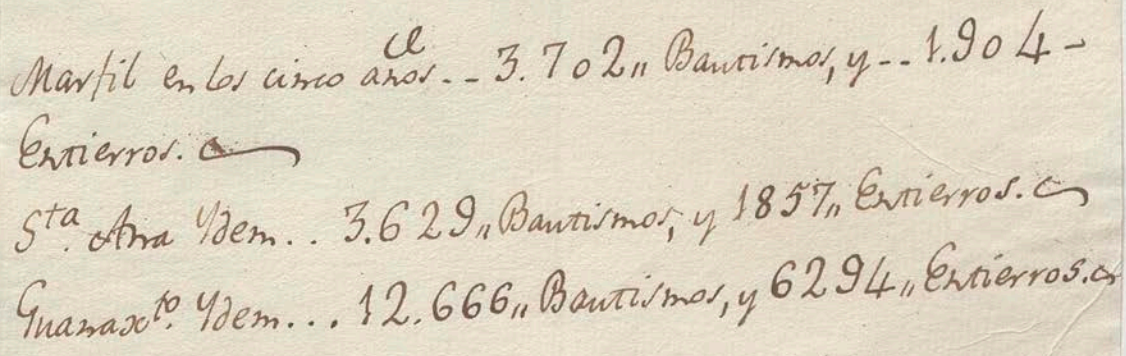 Marfil en los cinco años.. 3.702,, Bautismos, y.. 1.904-
Entierros.
Sta. Ana Ydem.. 3.629,, Bautismos, y 1857,, Entierros.
Guanaxto. Ydem... 12.666,, Bautismos, y 6294,, Entierros.